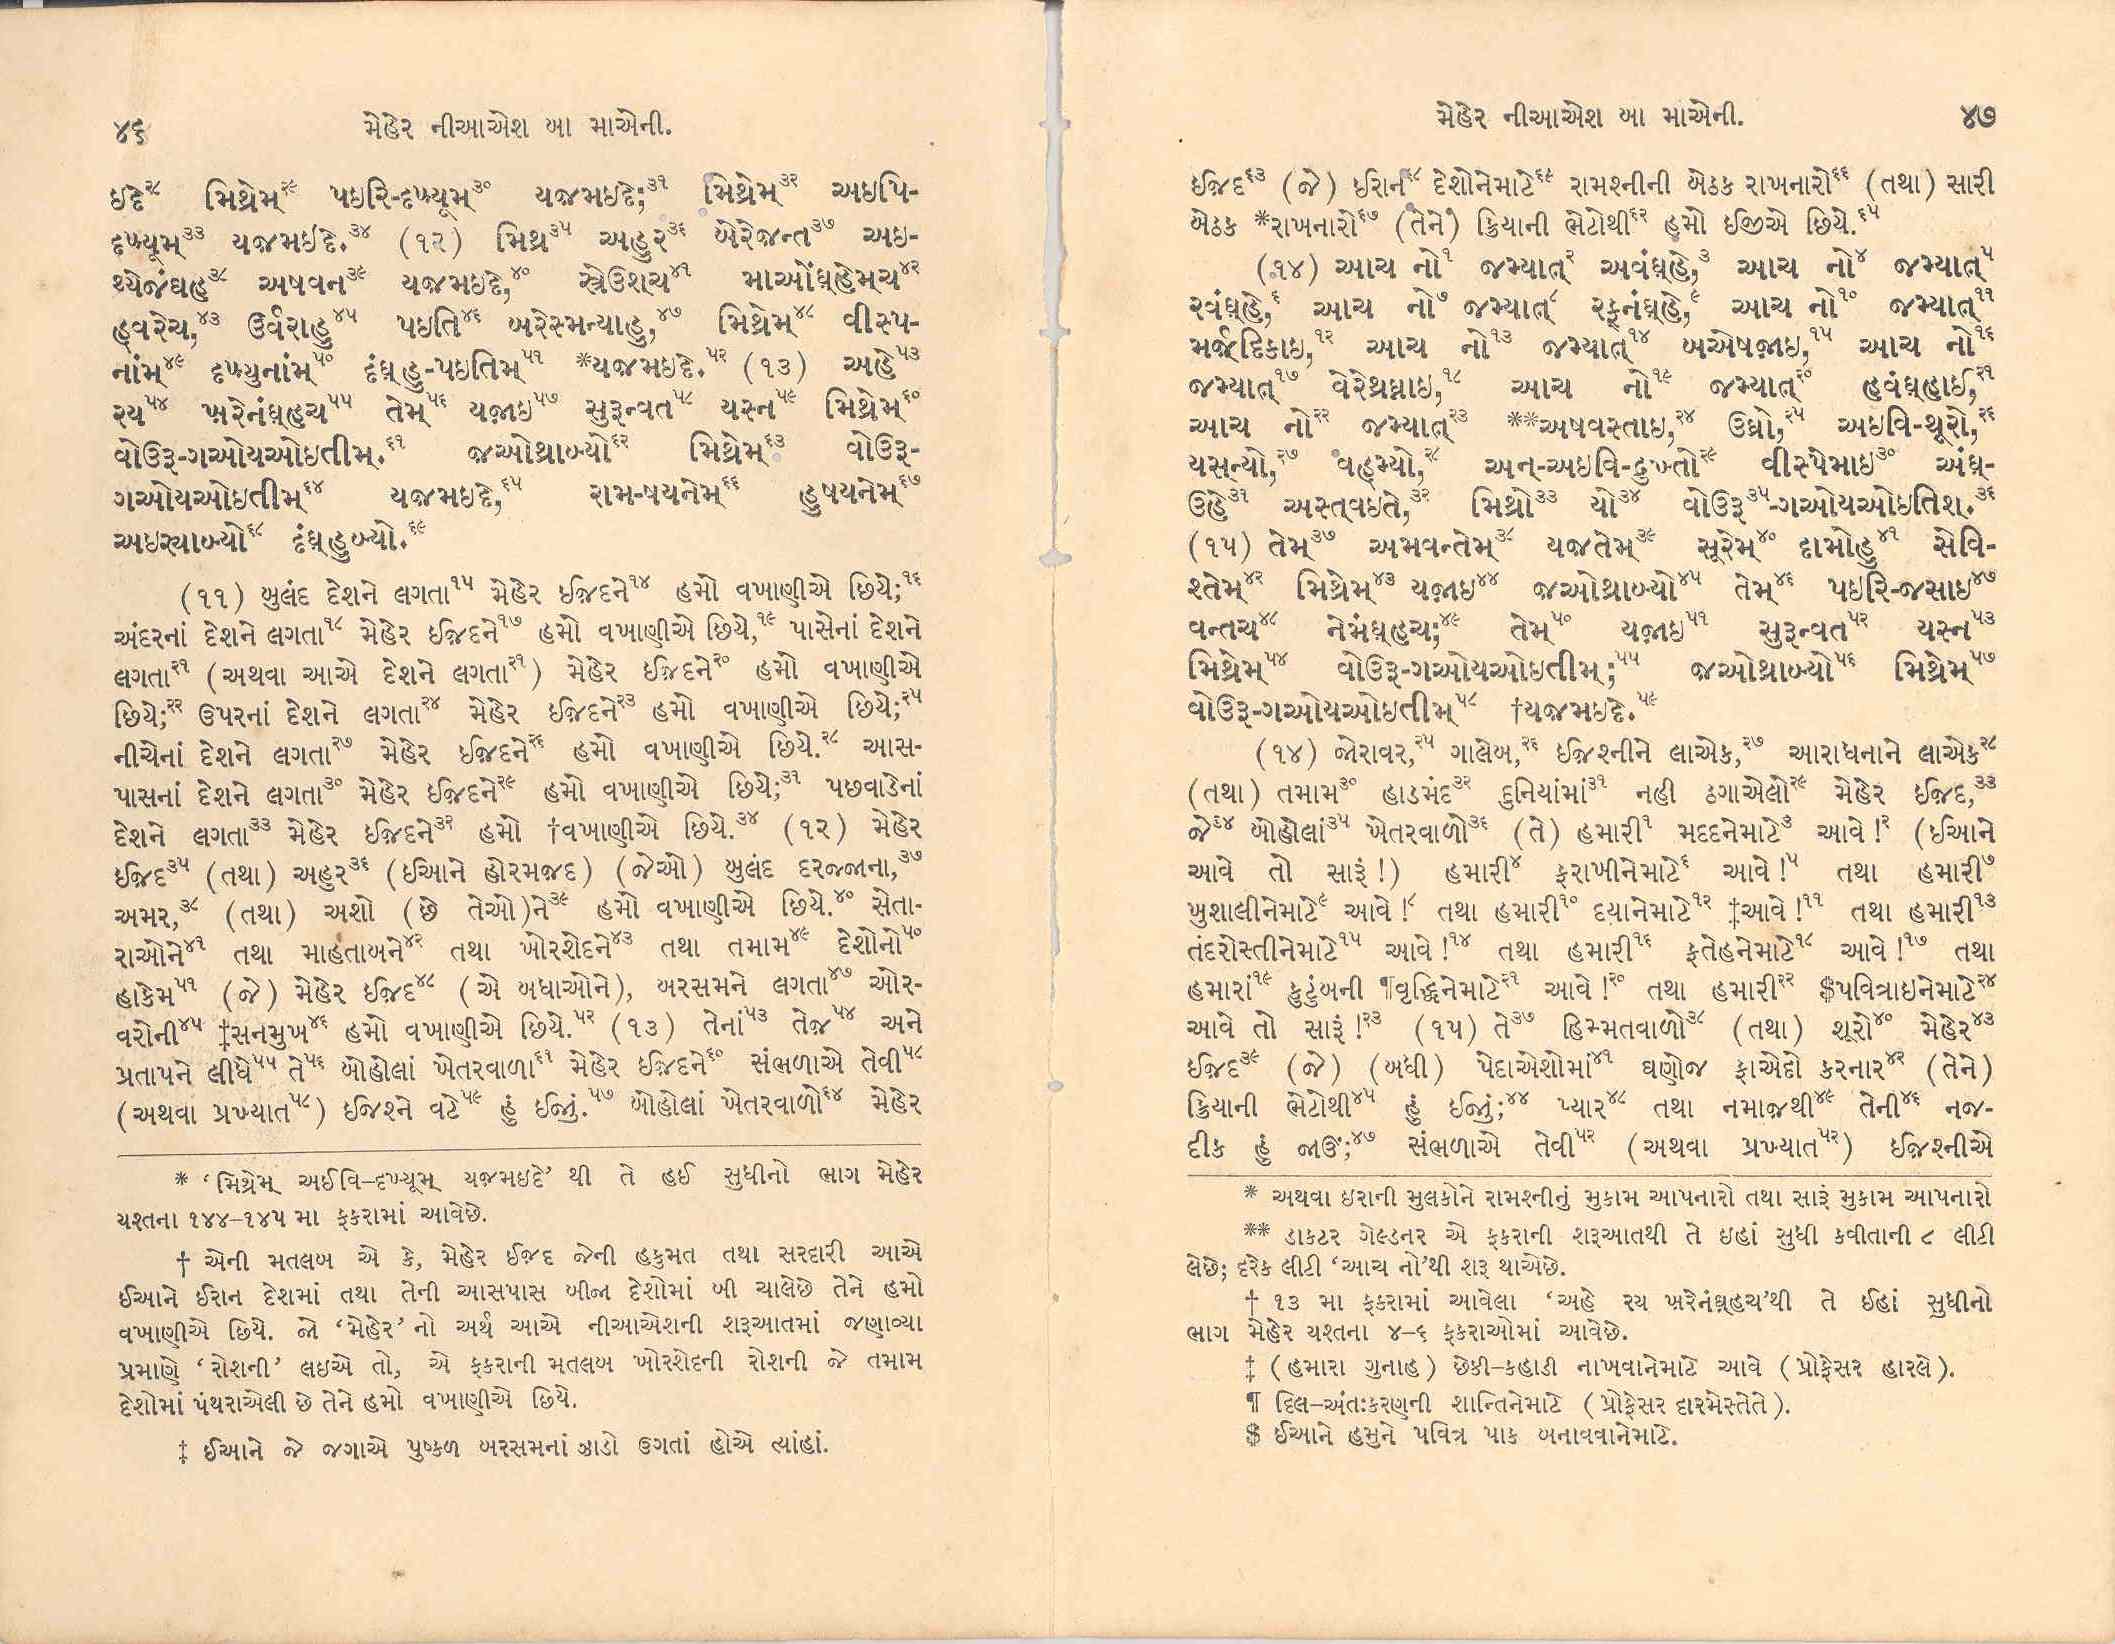 ૪૬ મેહેર નીઆએશ બા માએની.
ઇદે૨૮ મિથ્રેમ્૨૯ પઇરિ-દખ્યૂમ્૩૦ યજમઇદે;૩૧ મિથ્રેમ્૩૨ અઇપિ-
દખ્યૂમ્૩૩ યજમઇદે.૩૪ (૧૨) મિથ્ર૩૫ અહુર૩૬ બેરેજન્ત૩૭ અઇ-
થ્યેજંઘહ૩૮ અષવન૩૯ યજમઇદે,૪૦ સ્ત્રેઉશ્ચ૪૧ માઓંઘ્હેમ્ચ૪૨
હ્વરેચ,૪૩ ઉર્વરાહુ૪૫ પઇતિ૪૬ બરેસ્મન્યાહુ,૪૭ મિથ્રેમ્૪૮ વીસ્પ-
નાંમ્૪૯ દખ્યુનાંમ્૫૦ દંઘ્હુ-પઇતિમ્૫૧ *યજમઇદે.૫૨ (૧૩) અહે૫૩
રય૫૪ ખરેનંઘ્હચ૫૫ તેમ્૫૬ યજાઇ૫૭ સુરૂન્વત૫૮ યસ્ન૫૯ મિથ્રેમ્૬૦
વોઉરૂ-ગઓયઓઇતીમ્.૬૧ જઓથ્રાબ્યો૬૨ મિથ્રેમ્૬૩ વોઉરૂ-
ગઓયઓઇતીમ્૬૪ યજમઇદે,૬૫ રામ-ષયનેમ્૬૬ હુષયનેમ્૬૭
અઇર્યાબ્યો૬૮ દંઘ્હુબ્યો.૬૯
(૧૧) બુલંદ દેશને લગતા૧૫ મેહેર ઈજદને૧૪ હમો વખાણીએ છિયે;૧૬
અંદરનાં દેશને લગતા૧૮ મેહેર ઈજદને૧૭ હમો વખાણીએ છિયે,૧૯ પાસેનાં દેશને
લગતા૨૧ (અથવા આએ દેશને લગતા૨૧) મેહેર ઈજદને૨૦ હમો વખાણીએ
છિયે;૨૨ ઉપરનાં દેશને લગતા૨૪ મેહેર ઈજદને૨૩ હમો વખાણીએ છિયે;૨૫
નીચેનાં દેશને લગતા૨૭ મેહેર ઈજદને૨૬ હમો વખાણીએ છિયે.૨૮ આસ-
પાસનાં દેશને લગતા૩૦ મેહેર ઈજદને૨૯ હમો વખાણીએ છિયે;૩૧ પછવાડેનાં
દેશને લગતા૩૩ મેહેર ઈજદને૩૨ હમો †વખાણીએ છિયે.૩૪ (૧૨) મેહેર
ઈજદ૩૫ (તથા) અહુર૩૬ (ઈઆને હોરમજદ) (જેઓ) બુલંદ દરજ્જાના,૩૭
અમર,૩૮ (તથા) અશો (છે તેઓ)ને૩૯ હમો વખાણીએ છિયે.૪૦ સેતા-
રાઓને૪૧ તથા માહતાબને૪૨ તથા ખોરશેદને૪૩ તથા તમામ૪૯ દેશોનો૫૦
હાકેમ૫૧ (જે) મેહેર ઈજદ૪૮ (એ બધાઓને), બરસમને લગતા૪૭ ઓર-
વરોની૪૫ ‡સનમુખ૪૬ હમો વખાણીએ છિયે.૫૨ (૧૩) તેનાં૫૩ તેજ૫૪ અને
પ્રતાપને લીધે૫૫ તે૫૬ બોહોલાં ખેતરવાળા૬૧ મેહેર ઈજદને૬૦ સંભળાએ તેવી૫૮
(અથવા પ્રખ્યાત૫૮) ઈજશ્ને વટે૫૯ હું ઈજું.૫૭ બોહોલાં ખેતરવાળો૬૪ મેહેર
* ‘મિથ્રેમ્ અઈવિ-દખ્યૂમ્ યજમઇદે’ થી તે હઈ સુધીનો ભાગ મેહેર
યશ્તના ૧૪૪-૧૪૫ મા ફકરામાં આવેછે.
† એની મતલબ એ કે, મેહેર ઈજદ જેની હકુમત તથા સરદારી આએ
ઈઆને ઈરાન દેશમાં તથા તેની આસપાસ બીજા દેશોમાં બી ચાલેછે તેને હમો
વખાણીએ છિયે. જો ‘મેહેર’ નો અર્થ આએ નીઆએશની શરૂઆતમાં જણાવ્યા
પ્રમાણે ‘રોશની’ લઇએ તો, એ ફકરાની મતલબ ખોરશેદની રોશની જે તમામ
દેશોમાં પંથરાએલી છે તેને હમો વખાણીએ છિયે.
‡ ઈઆને જે જગાએ પુષ્કળ બરસમનાં ઝાડો ઉગતાં હોએ ત્યાંહાં.
મેહેર નીઆએશ બા માએની. ૪૭
ઈજદ૬૩ (જે) ઈરાન૬૮ દેશોનેમાટે૬૯ રામશ્નીની બેઠક રાખનારો૬૬ (તથા) સારી
બેઠક *રાખનારો૬૭ (તેને) ક્રિયાની ભેટોથી૬૨ હમો ઈજીએ છિયે.૬૫
(૧૪) આચ નો૧ જમ્યાત્૨ અવંઘ્હે,૩ આચ નો૪ જમ્યાત્૫
રવંઘ્હે,૬ આચ નો૭ જમ્યાત્૮ રફ્નંઘ્હે,૯ આચ નો૧૦ જમ્યાત્૧૧
મર્જદિકાઇ,૧૨ આચ નો૧૩ જમ્યાત્૧૪ બએષજાઇ,૧૫ આચ નો૧૬
જમ્યાત્૧૭ વેરેથ્રઘ્નાઇ,૧૮ આચ નો૧૯ જમ્યાત્૨૦ હવંઘ્હાઈ,૨૧
આચ નો૨૨ જમ્યાત્૨૩ **અષવસ્તાઇ,૨૪ ઉઘ્રો,૨૫ અઇવિ-થૂરો,૨૬
યસ્ન્યો,૨૭ વહ્મ્યો,૨૮ અન્-અઇવિ-દ્રુખ્તો૨૯ વીસ્પેમાઇ૩૦ અંઘ્-
ઉહે૩૧ અસ્ત્વઇતે,૩૨ મિથ્રો૩૩ યો૩૪ વોઉરૂ૩૫-ગઓયઓઇતિશ.૩૬
(૧૫) તેમ્૩૭ અમવન્તેમ્૩૮ યજતેમ્૩૯ સૂરેમ્૪૦ દામોહુ૪૧ સેવિ-
શ્તેમ્૪૨ મિથ્રેમ્૪૩ યજાઇ૪૪ જઓથ્રાબ્યો૪૫ તેમ્૪૬ પઇરિ-જસાઇ૪૭
વન્તચ૪૮ નેમંઘ્હચ;૪૯ તેમ્૫૦ યજાઇ૫૧ સુરૂન્વત૫૨ યસ્ન૫૩
મિથ્રેમ્૫૪ વોઉરૂ-ગઓયઓઇતીમ્;૫૫ જઓથ્રાબ્યો૫૬ મિથ્રેમ્૫૭
વોઉરૂ-ગઓયઓઇતીમ્૫૮ †યજમઇદે.૫૯
(૧૪) જોરાવર,૨૫ ગાલેબ,૨૬ ઈજશ્નીને લાએક,૨૭ આરાધનાને લાએક૨૮
(તથા) તમામ૩૦ હાડમંદ૩૨ દુનિયાંમાં૩૧ નહી ઠગાએલો૨૯ મેહેર ઈજદ,૩૩
જે૩૪ બોહોલાં૩૫ ખેતરવાળો૩૬ (તે) હમારી૧ મદદનેમાટે૩ આવે!૨ (ઈઆને
આવે તો સારૂં!) હમારી૪ ફરાખીનેમાટે૬ આવે!૫ તથા હમારી૭
ખુશાલીનેમાટે૯ આવે!૮ તથા હમારી૧૦ દયાનેમાટે૧૨ ‡આવે!૧૧ તથા હમારી૧૩
તંદરોસ્તીનેમાટે૧૫ આવે!૧૪ તથા હમારી૧૬ ફતેહનેમાટે૧૮ આવે!૧૭ તથા
હમારાં૧૯ કુટુંબની ¶વૃદ્ધિનેમાટે૨૧ આવે!૨૦ તથા હમારી૨૨ $પવિત્રાઇનેમાટે૨૪
આવે તો સારૂં!૨૩ (૧૫) તે૩૭ હિમ્મતવાળો૩૮ (તથા) શૂરો૪૦ મેહેર૪૩
ઈજદ૩૯ (જે) (બધી) પેદાએશોમાં૪૧ ઘણોજ ફાએદો કરનાર૪૨ (તેને)
ક્રિયાની ભેટોથી૪૫ હું ઈજું;૪૪ પ્યાર૪૮ તથા નમાજથી૪૯ તેની૪૬ નજ-
દીક હું જાઊં;૪૭ સંભળાએ તેવી૫૨ (અથવા પ્રખ્યાત૫૨) ઈજશ્નીએ
* અથવા ઇરાની મુલકોને રામશ્નીનું મુકામ આપનારો તથા સારૂં મુકામ આપનારો
** ડાકટર ગેલ્ડનર એ ફકરાની શરૂઆતથી તે ઇહાં સુધી કવીતાની ૮ લીટી
લેછે; દરેક લીટી ‘આચ નો’થી શરૂ થાએછે.
† ૧૩ મા ફકરામાં આવેલા ‘અહે રય ખરેનંઘ્હચ’થી તે ઈહાં સુધીનો
ભાગ મેહેર યશ્તના ૪-૬ ફકરાઓમાં આવેછે.
‡ (હમારા ગુનાહ) છેકી-કહાડી નાખવાનેમાટે આવે (પ્રોફેસર હારલે).
¶ દિલ-અંતઃકરણની શાન્તિનેમાટે (પ્રોફેસર દારમેસ્તેતે).
$ ઈઆને હમુને પવિત્ર પાક બનાવવાનેમાટે.